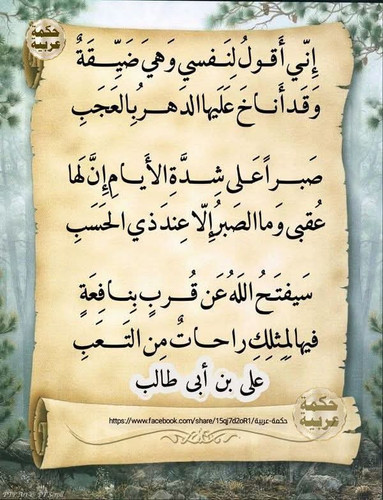 حكمة
عربية
إِنّي أَقولُ لِنَفسي وَهيَ ضَيِّقَةٌ
وَقَد أَناخَ عَلَيها الدَهرُ بِالعَجَبِ
صَبراً عَلى شِدَّةِ الأَيامِ إِنَّ لَها
عُقبى وَما الصَبرُ إِلّا عِندَ ذي الحَسَبِ
سَيفتَحُ اللَهُ عَن قُربٍ بِنافِعَةٍ
فيها لِمِثلِكِ راحاتٌ مِنَ التَعَبِ
على بن أبى طالب
حكمة
عربية
حكمة-عربية/https://www.facebook.com/share/15qj7d2oR1